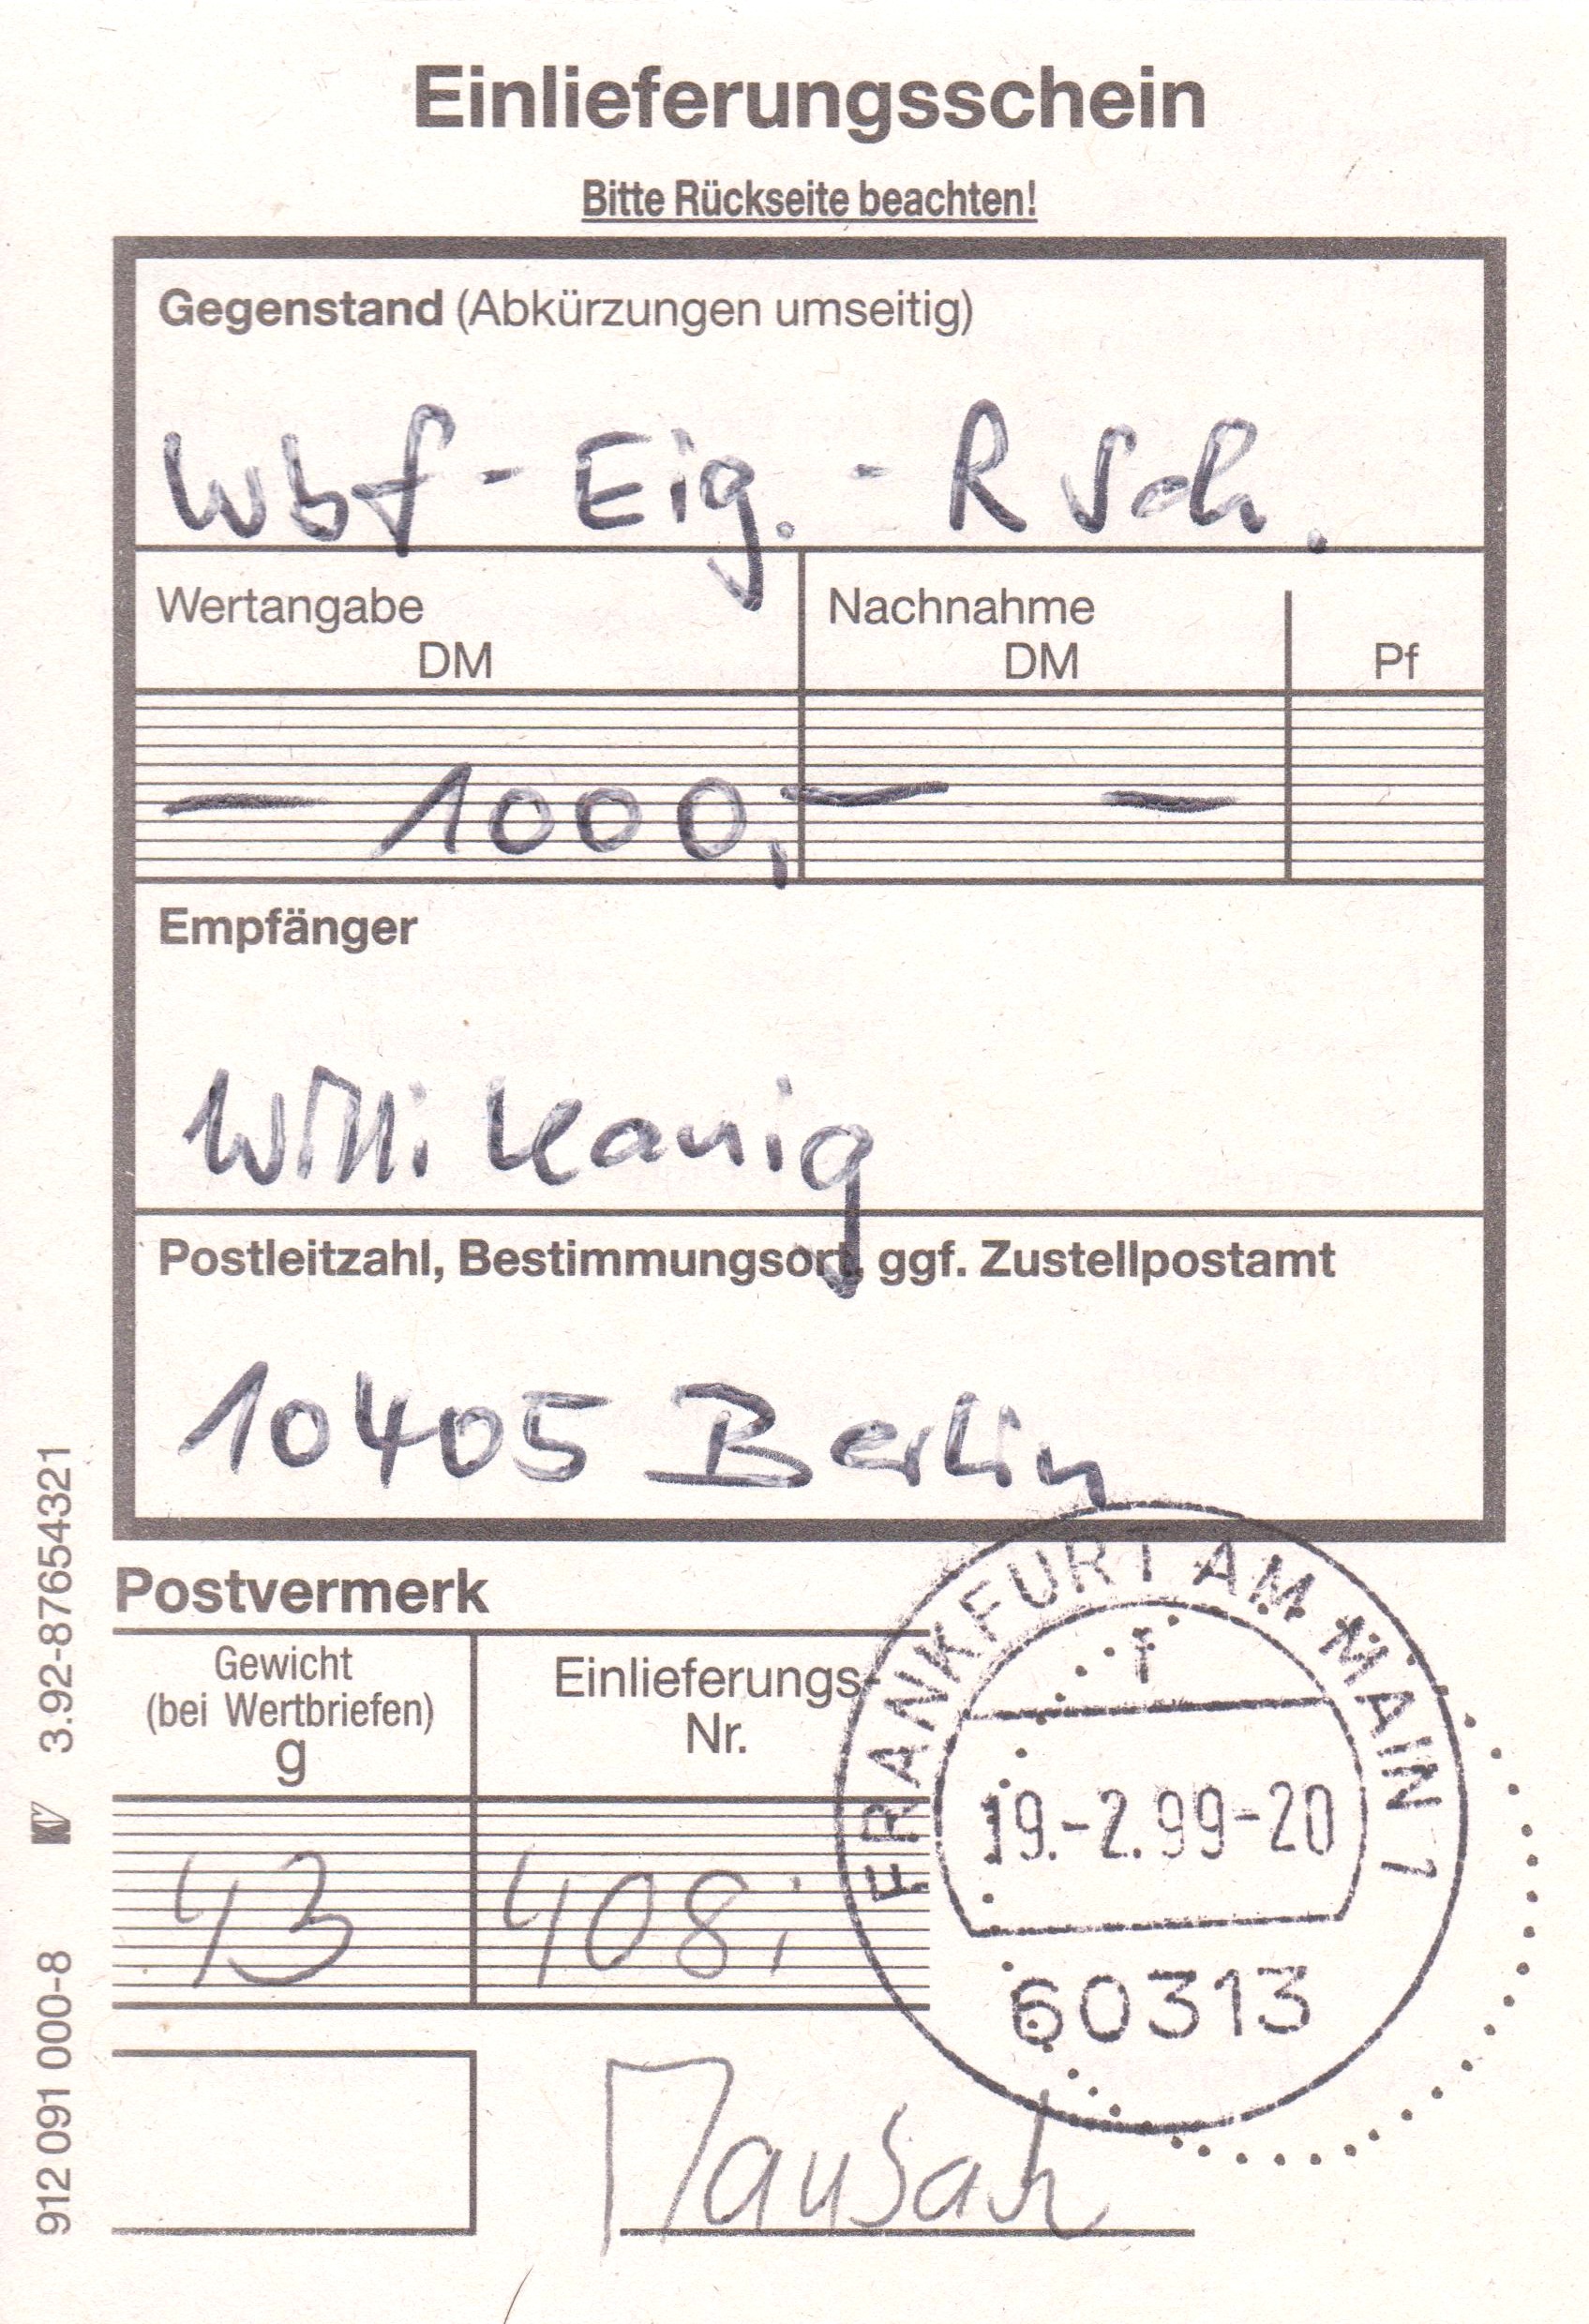 Einlieferungsschein
Bitte Rückseite beachten!
Gegenstand (Abkürzungen umseitig)
Wbf - Eig. - R Sch.
Wertangabe
DM
Nachnahme
DM
Pf
— 1000,— —
Empfänger
Willi Kanig
Postleitzahl, Bestimmungsort, ggf. Zustellpostamt
10405 Berlin
Postvermerk
Gewicht
(bei Wertbriefen)
g
Einlieferungs-
Nr.
43
408
FRANKFURT AM MAIN 1
f
19.-2.99-20
60313
912 091 000-8 3.92-87654321